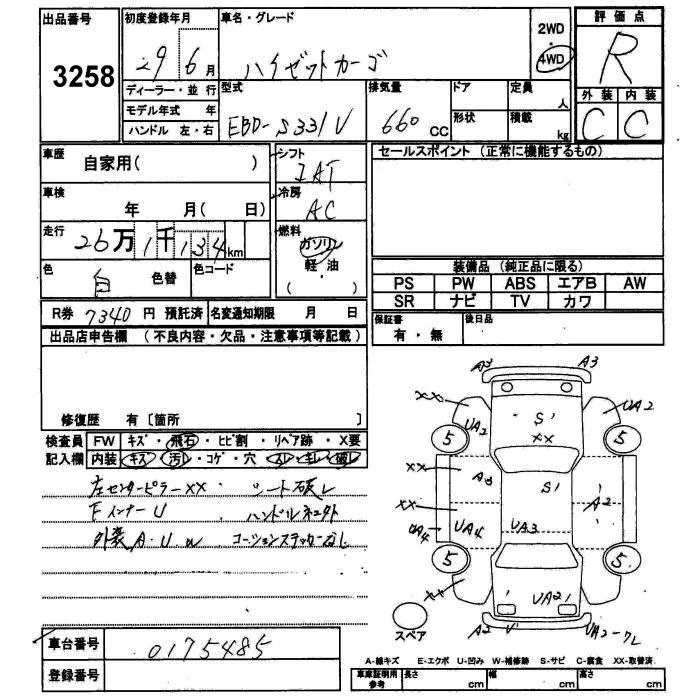 出品番号
3258
初度登録年月
29 6月
車名・グレード
ハイゼットカーゴ
2WD
・
4WD
評価点
R
外装 内装
C C
ディーラー・並行
モデル年式 年
ハンドル 左・右
型式
EBD-S331V
排気量
660 CC
ドア
形状
定員
人
積載
kg
車歴
自家用( )
シフト
IAT
車検
年 月( 日)
冷房
AC
走行
26万1千134km
燃料
ガソリン
軽・油
( )
色
白 色替
色コード
R券 7340 円 預託済
名変通知期限 月 日
セールスポイント (正常に機能するもの)
装備品 (純正品に限る)
PS PW ABS エアB AW
SR ナビ TV カワ
保証書
有・無
後日品
出品店申告欄 (不良内容・欠品・注意事項等記載)
修復歴 有〔箇所 〕
検査員
記入欄
FW キズ・飛石・ヒビ割・リペア跡・X要
内装 キズ・汚レ・コゲ・穴・スレ・キレ・破レ
左センターピラーXX シート破レ
Fインナー U
外装A・U・W コーションステッカーなし
車台番号
0175485
登録番号
A3 A3
XX UA2 UA2
S1
XX
5 5
XX A3 S1 A2
XX
UA4 UA4 UA3
5 5
XX UA21
スペア
A2
A-線キズ E-エクボ U-凹み W-補修跡 S-サビ C-腐食 XX-取替済
車庫証明用
参考
長さ cm
幅 cm
高さ cm